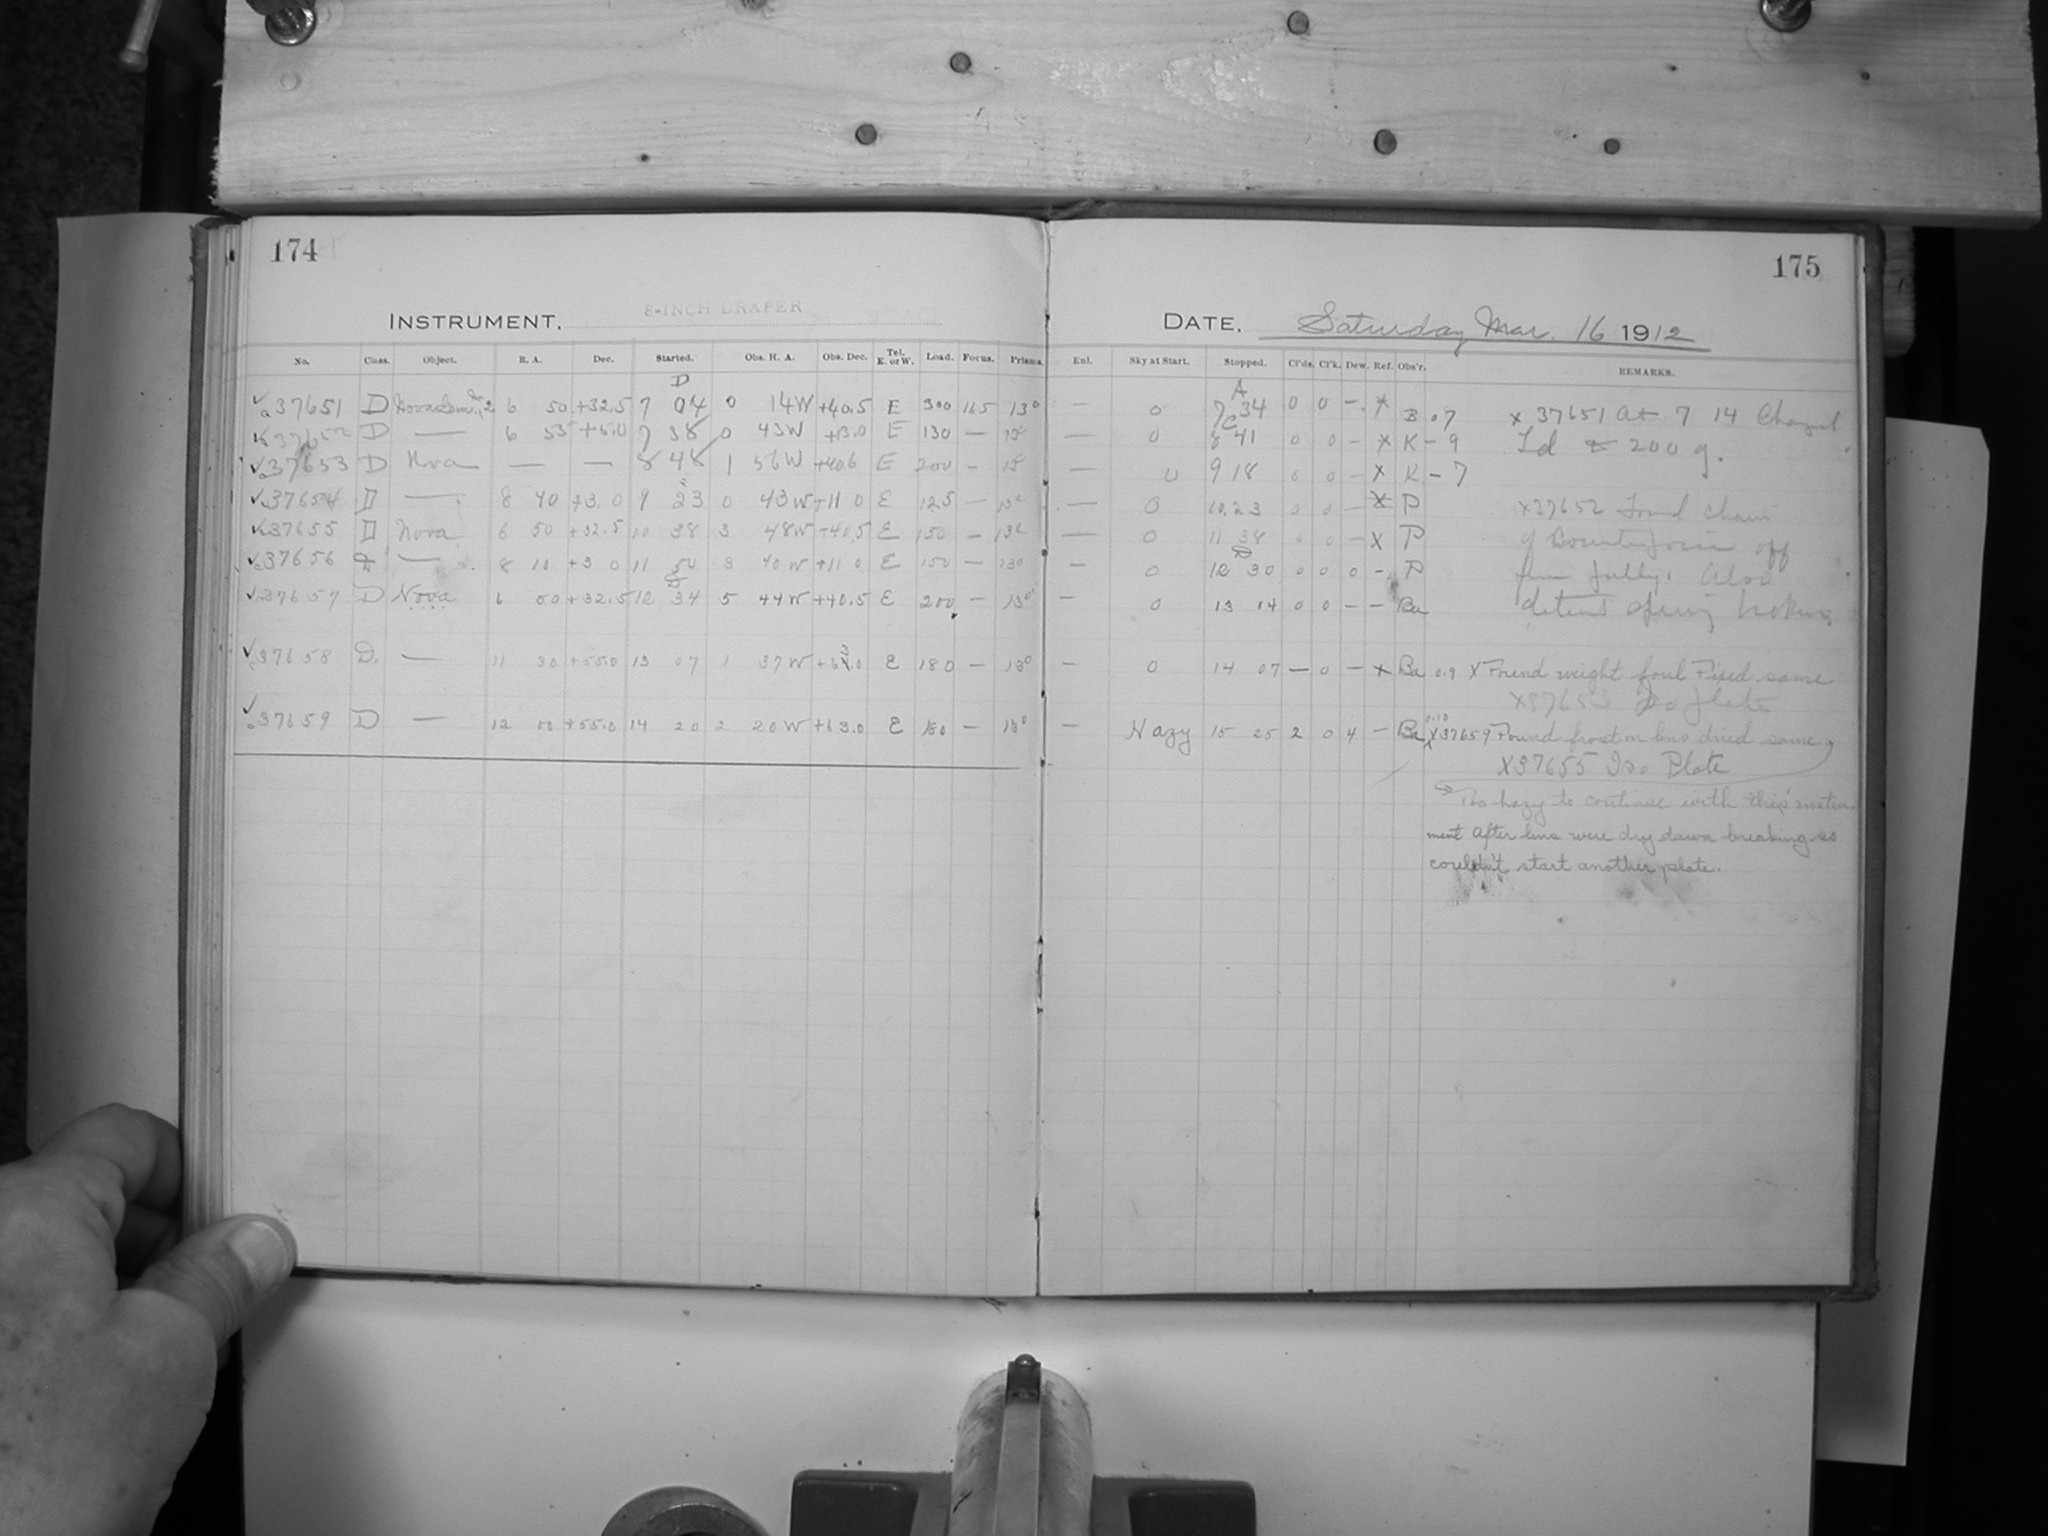 174
INSTRUMENT, 8-INCH DRAPER
No. Class. Object. R. A. Dec. Started. Obs. H. A. Obs. Dec. Tel. E. or W. Load. Focus. Prisms.
D
37651 D 6 50 +32.5 7 04 0 14W +40.5 E 300 165 13°
37652 D — 6 53 +5.0 7 38 0 43W +13.0 E 130 —
37653 D Nova — — 8 48 1 56W +40.6 E 200 —
37654 D — 8 40 +3.0 9 23 0 43W +11 0 E 125 —
37655 D Nova 6 50 +32.5 10 38 3 48W +40.5 E 150 —
37656 — 8 10 +3 0 11 50 3 40W +11 0 E 150 — 13°
37657 D Nova 6 50 +32.5 12 34 5 44W +40.5 E 200 — 13°
37658 D. — 11 30 +55.0 13 07 1 37W E 180 — 13°
37659 D — 12 00 +55.0 14 20 2 20W +63.0 E 180 — 13°
175
DATE, Saturday Mar. 16 1912
Enl. Sky at Start. Stopped. Cl'ds. Cl'k. Dew. Ref. Obs'r. REMARKS.
A
— 0 7 34 0 0 — x B .07 x 37651 At 7 14 Changed
— 0 8 41 0 0 — x K — 9 Ld to 200 g.
— 0 9 18 0 0 — x K — 7
— 0 10.23 0 0 — x P x37652 Found chain
— 0 11 38 0 0 — x P off
— 0 12 30 0 0 0 — P Also
— 0 13 14 0 0 — — Ba spring
— 0 14 07 — 0 — x Ba 0.9 x Found weight foul Fixed same
X37653 Iso plate
— Hazy 15 25 2 0 4 — Ba 0.10 X37659 Found frost on lens dried same
X37655 Iso Plate
Too hazy to continue with this instru-
ment after lens were dry dawn breaking so
couldn't start another plate.